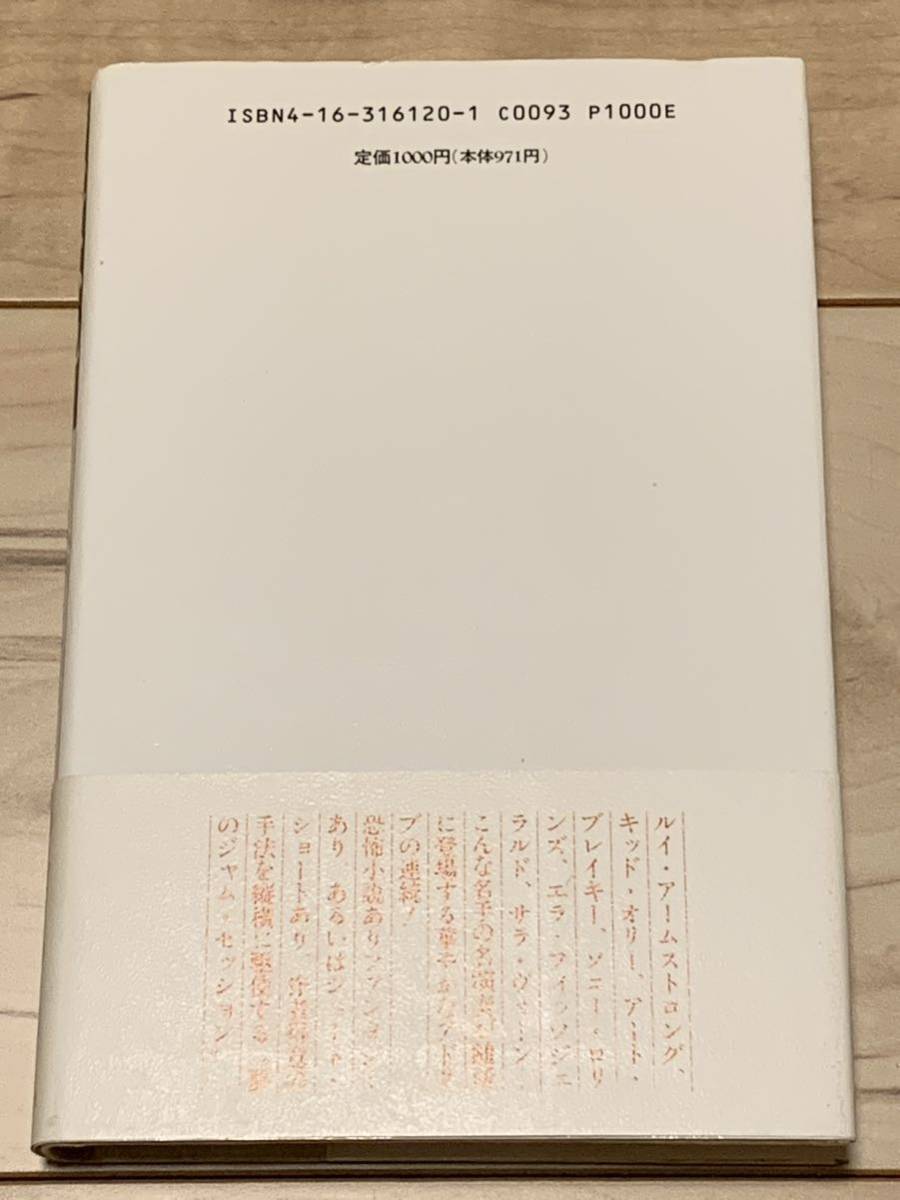 ISBN4-16-316120-1 C0093 P1000E
定価1000円(本体971円)
ルイ・アームストロング、
キッド・オリー、アート・
ブレイキー、ソニー・ロリ
ンズ、エラ・フィッツジェ
ラルド、サラ・ヴォーン…
こんな名手の名演奏が
に登場する華やかなアドリ
ブの連続!
恐怖小説あり
あり あるいはショート・
ショートあり、
手法を縦横に駆使する
のジャム・セッション。